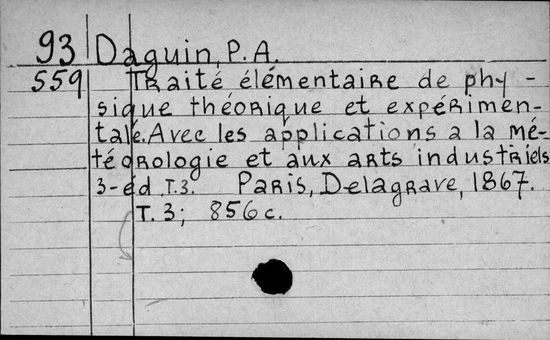 93 Daguin, P.A.
559 Traité élémentaire de phy-
sique théorique et expérimen-
tale. Avec les applications a la mé-
téorologie et aux arts industriels
3-éd T.3. Paris, Delagrave, 1867.
T. 3; 856 c.